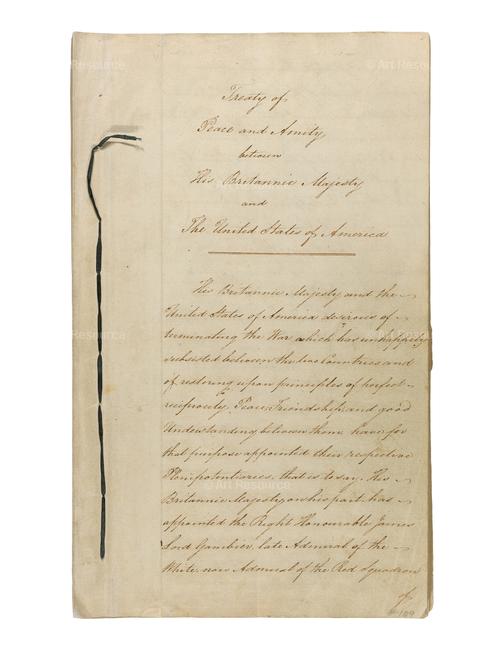 Treaty of
Peace and Amity
between
His Britannic Majesty
and
The United States of America
His Britannic Majesty and the
United States of America desirous of
terminating the War which has unhappily
subsisted between the two Countries and
of restoring upon principles of perfect
reciprocity, Peace, Friendship, and good
Understanding between them, have for
that purpose appointed their respective
Plenipotentiaries, that is to say, His
Britannic Majesty on his part has
appointed the Right Honourable James
Lord Gambier, late Admiral of the
White, now Admiral of the Red Squadron
of
109
© Art Resource
© Art Resource